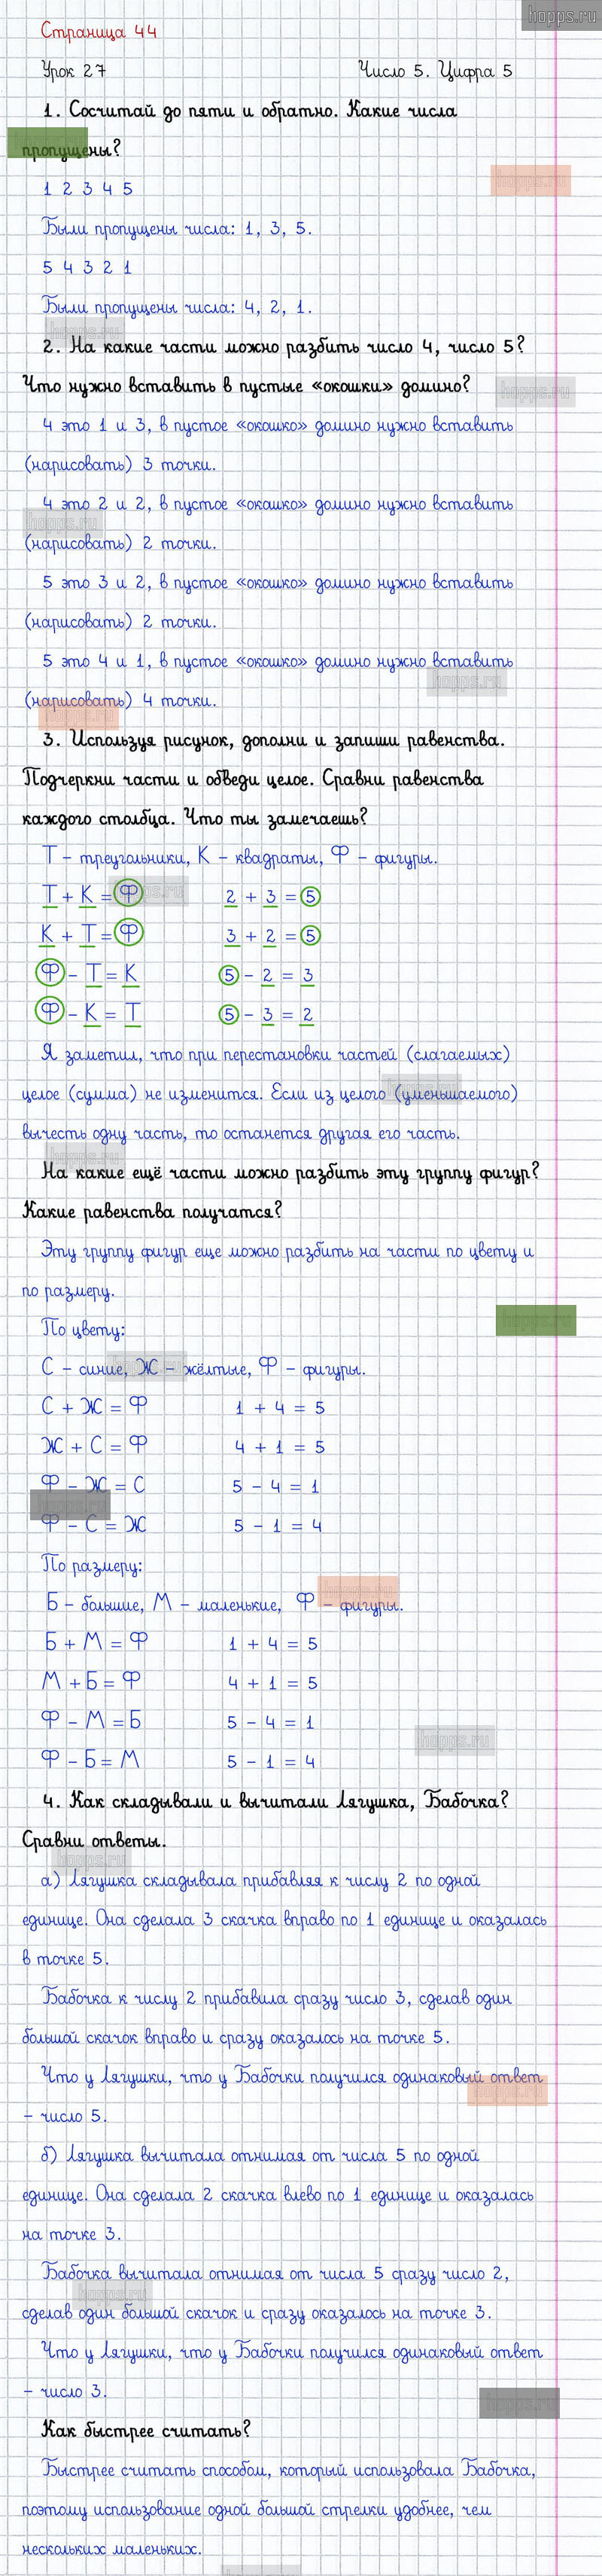 hopps.ru
Страница 44
Урок 27 Число 5. Цифра 5
1. Сосчитай до пяти и обратно. Какие числа
пропущены?
hopps.ru
1 2 3 4 5
Были пропущены числа: 1, 3, 5.
5 4 3 2 1
Были пропущены числа: 4, 2, 1.
hopps.ru
2. На какие части можно разбить число 4, число 5?
Что нужно вставить в пустые «окошки» домино?
hopps.ru
4 это 1 и 3, в пустое «окошко» домино нужно вставить
(нарисовать) 3 точки.
4 это 2 и 2, в пустое «окошко» домино нужно вставить
hopps.ru
(нарисовать) 2 точки.
5 это 3 и 2, в пустое «окошко» домино нужно вставить
(нарисовать) 2 точки.
5 это 4 и 1, в пустое «окошко» домино нужно вставить
hopps.ru
(нарисовать) 4 точки.
hopps.ru
3. Используя рисунок, дополни и запиши равенства.
Подчеркни части и обведи целое. Сравни равенства
каждого столбца. Что ты замечаешь?
Т – треугольники, К – квадраты, Ф – фигуры.
hopps.ru
Т + К = Ф 2 + 3 = 5
К + Т = Ф 3 + 2 = 5
Ф – Т = К 5 – 2 = 3
Ф – К = Т 5 – 3 = 2
Я заметил, что при перестановки частей (слагаемых)
целое (сумма) не изменится. Если из целого (уменьшаемого)
hopps.ru
вычесть одну часть, то останется другая его часть.
hopps.ru
На какие ещё части можно разбить эту группу фигур?
Какие равенства получатся?
Эту группу фигур еще можно разбить на части по цвету и
по размеру.
hopps.ru
По цвету:
С – синие, Ж – жёлтые, Ф – фигуры.
hopps.ru
С + Ж = Ф 1 + 4 = 5
Ж + С = Ф 4 + 1 = 5
Ф – Ж = С 5 – 4 = 1
hopps.ru
Ф – С = Ж 5 – 1 = 4
По размеру:
hopps.ru
Б – большие, М – маленькие, Ф – фигуры.
Б + М = Ф 1 + 4 = 5
М + Б = Ф 4 + 1 = 5
Ф – М = Б 5 – 4 = 1
hopps.ru
Ф – Б = М 5 – 1 = 4
4. Как складывали и вычитали Лягушка, Бабочка?
Сравни ответы.
hopps.ru
а) Лягушка складывала прибавляя к числу 2 по одной
единице. Она сделала 3 скачка вправо по 1 единице и оказалась
в точке 5.
Бабочка к числу 2 прибавила сразу число 3, сделав один
большой скачок вправо и сразу оказалось на точке 5.
Что у Лягушки, что у Бабочки получился одинаковый ответ
hopps.ru
– число 5.
б) Лягушка вычитала отнимая от числа 5 по одной
единице. Она сделала 2 скачка влево по 1 единице и оказалась
на точке 3.
Бабочка вычитала отнимая от числа 5 сразу число 2,
hopps.ru
сделав один большой скачок и сразу оказалось на точке 3.
Что у Лягушки, что у Бабочки получился одинаковый ответ
– число 3.
hopps.ru
Как быстрее считать?
Быстрее считать способом, который использовала Бабочка,
поэтому использование одной большой стрелки удобнее, чем
нескольких маленьких.